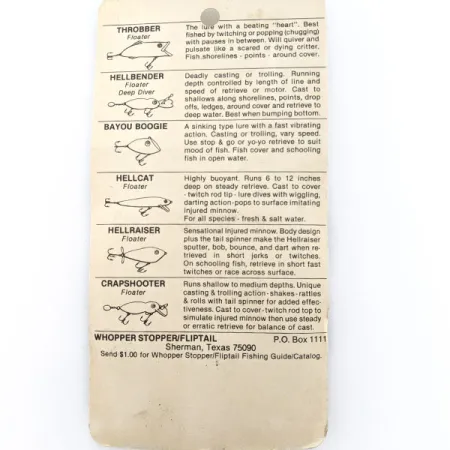 THROBBER
Floater
The lure with a beating "heart". Best
fished by twitching or popping (chugging)
with pauses in between. Will quiver and
pulsate like a scared or dying critter.
Fish shorelines - points - around cover.
HELLBENDER
Floater
Deep Diver
Deadly casting or trolling. Running
depth controlled by length of line and
speed of retrieve or motor. Cast to
shallows along shorelines, points, drop
offs, ledges, around cover and retrieve to
deep water. Best when bumping bottom.
BAYOU BOOGIE
A sinking type lure with a fast vibrating
action. Casting or trolling, vary speed.
Use stop & go or yo-yo retrieve to suit
mood of fish. Fish cover and schooling
fish in open water.
HELLCAT
Floater
Highly buoyant. Runs 6 to 12 inches
deep on steady retrieve. Cast to cover
- twitch rod tip - lure dives with wiggling,
darting action-pops to surface imitating
injured minnow.
For all species - fresh & salt water.
HELLRAISER
Floater
Sensational Injured minnow. Body design
plus the tail spinner make the Hellraiser
sputter, bob, bounce, and dart when re-
trieved in short jerks or twitches.
On schooling fish, retrieve in short fast
twitches or race across surface.
CRAPSHOOTER
Floater
Runs shallow to medium depths. Unique
casting & trolling action-shakes-rattles
& rolls with tail spinner for added effec-
tiveness. Cast to cover-twitch rod top to
simulate injured minnow then use steady
or erratic retrieve for balance of cast.
WHOPPER STOPPER/FLIPTAIL P.O. Box 1111
Sherman, Texas 75090
Send $1.00 for Whopper Stopper/Fliptail Fishing Guide/Catalog.